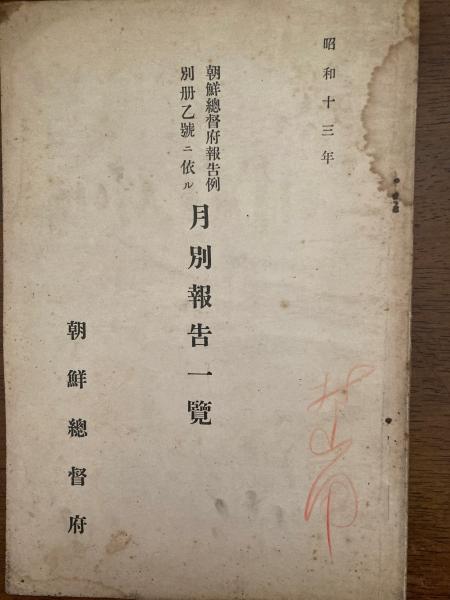 昭和十三年
朝鮮總督府報告例
別册乙號ニ依ル
月別報告一覽
朝鮮總督府